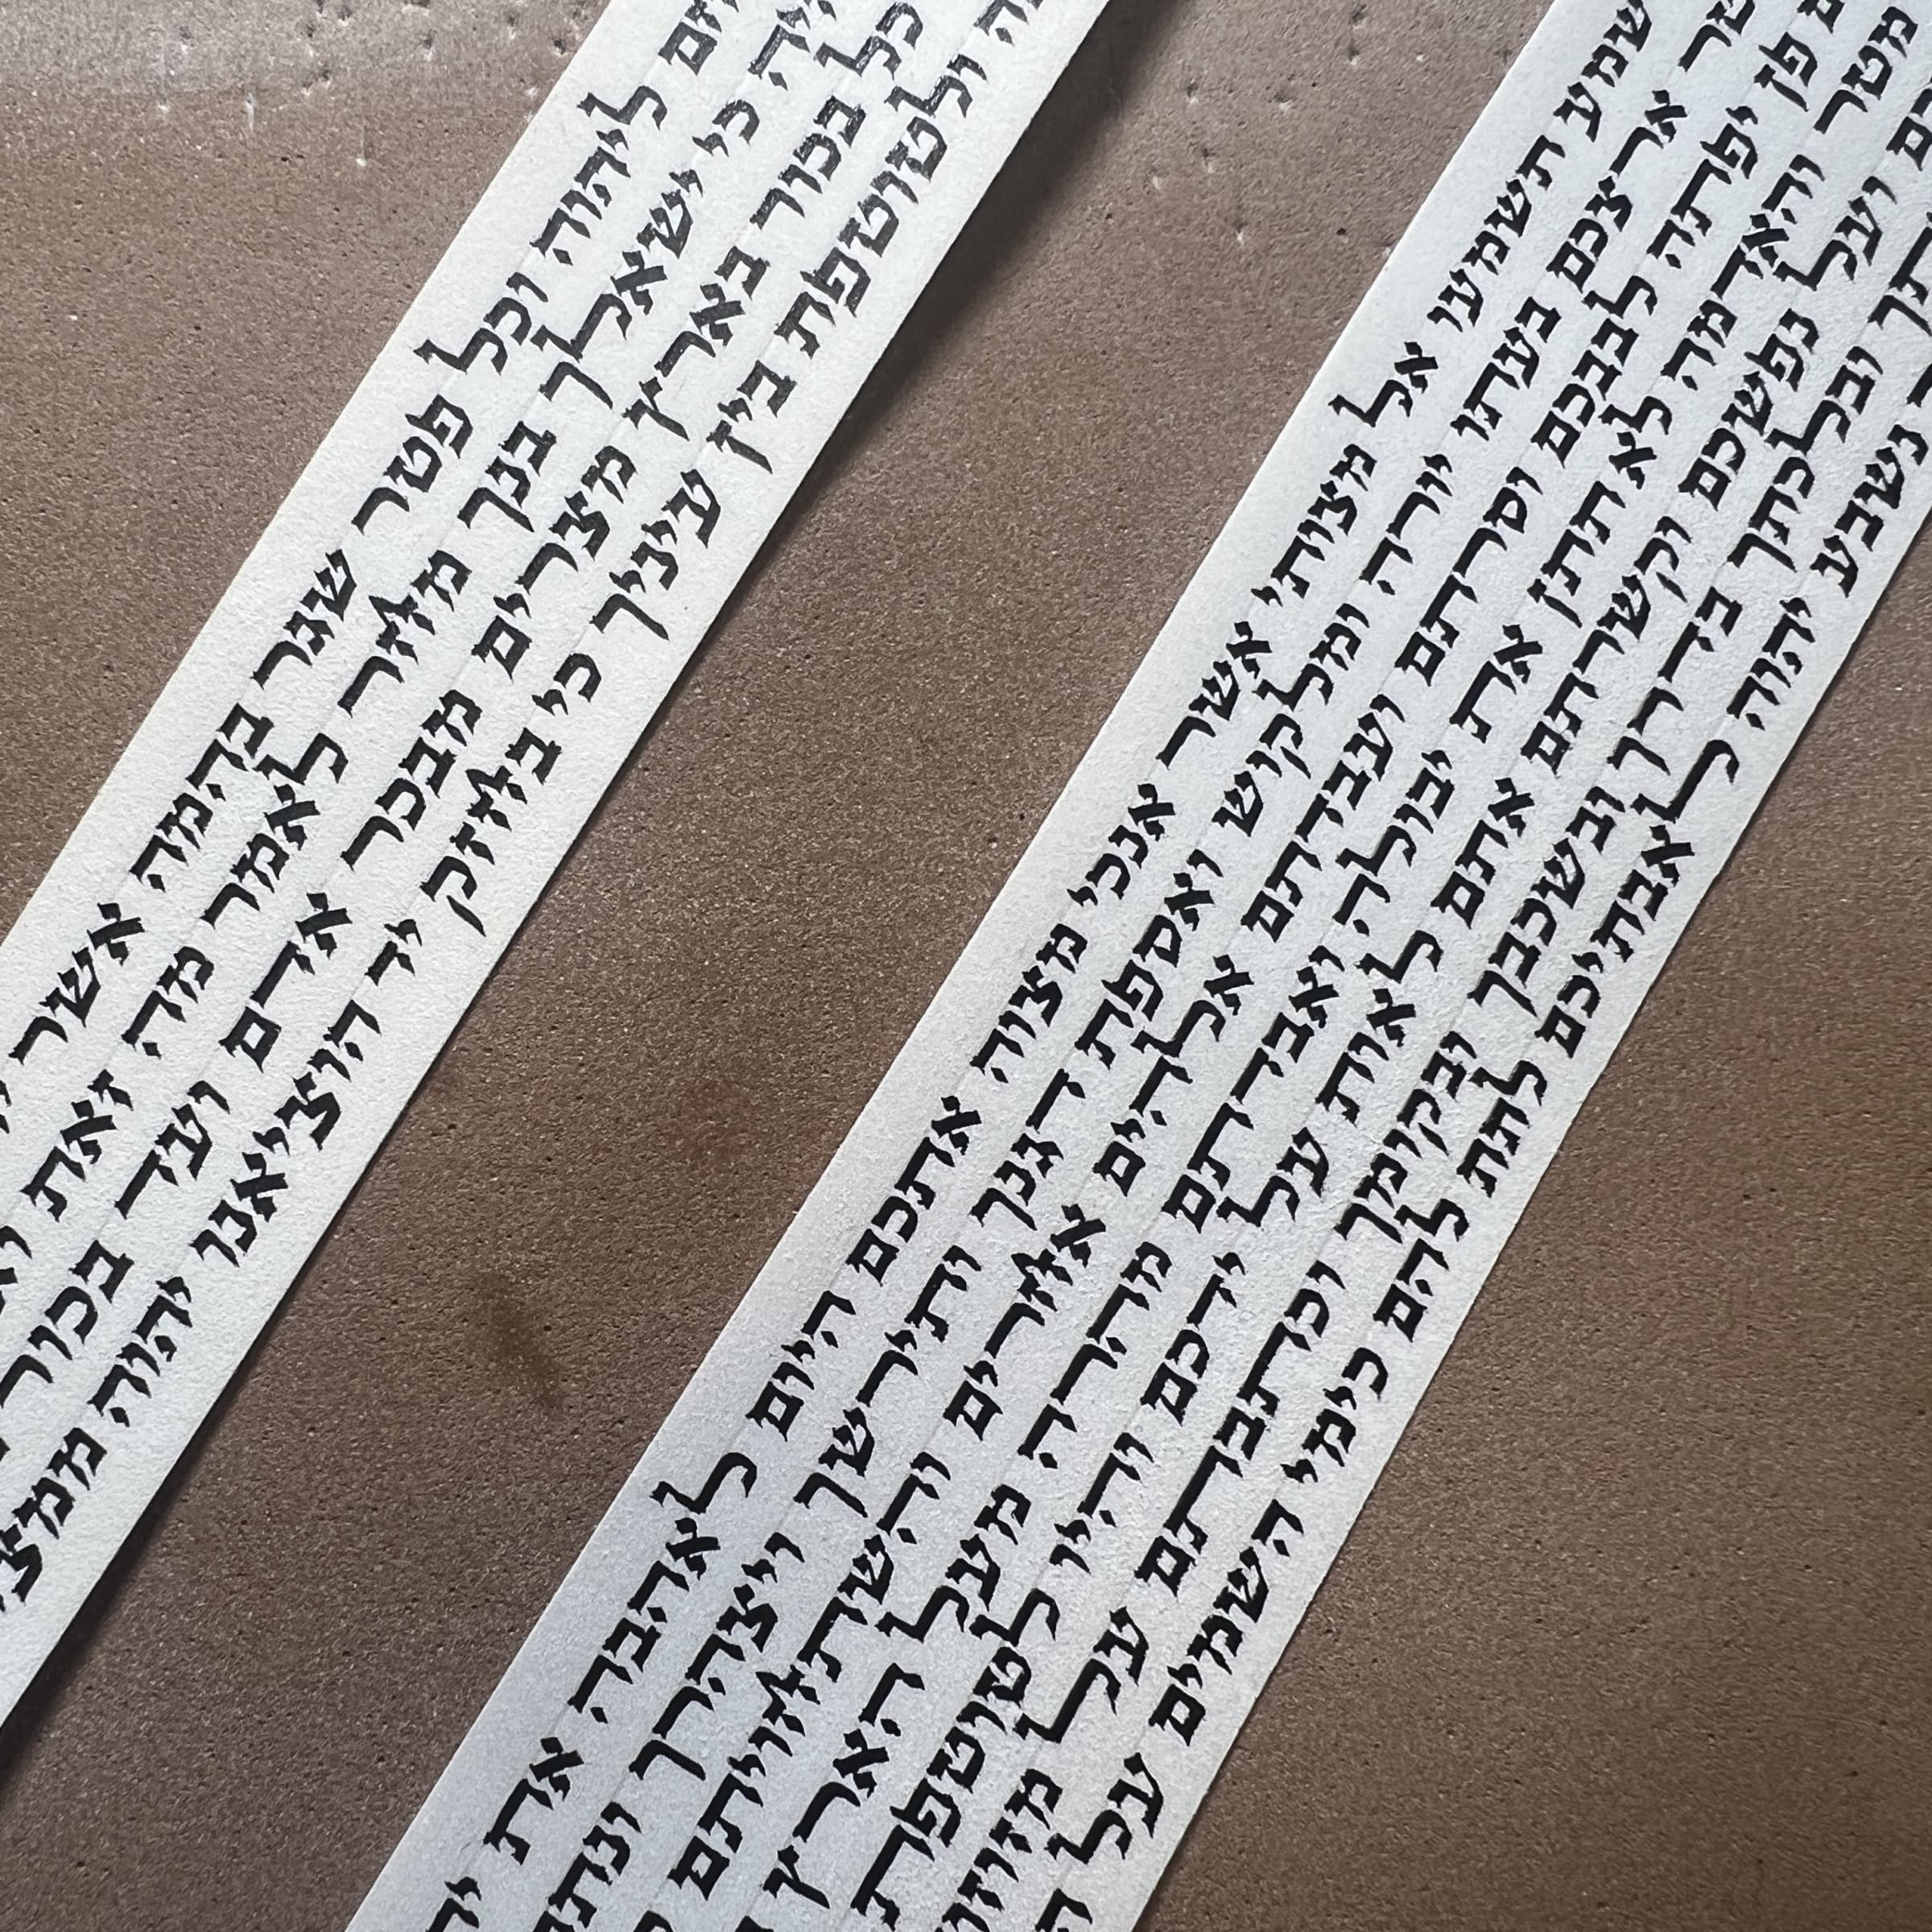 ליהוה וכל פטר שגר בהמה אשר
כי ישאלך בנך מחר לאמר מה זאת
כל בכור בארץ מצרים מבכר אדם ועד בכור
ולטוטפת בין עיניך כי בחזק יד הוציאנו יהוה ממצ
שמע תשמעו אל מצותי אשר אנכי מצוה אתכם היום לאהבה את
טר ארצכם בעתו יורה ומלקוש ואספת דגנך ותירשך ויצהרך ונתת
פן יפתה לבבכם וסרתם ועבדתם אלהים אחרים והשתחויתם
מטר והאדמה לא תתן את יבולה ואבדתם מהרה מעל הארץ
ועל נפשכם וקשרתם אתם לאות על ידכם והיו לטוטפת
תך ובלכתך בדרך ובשכבך ובקומך וכתבתם על מזוז
נשבע יהוה לאבתיכם לתת להם כימי השמים על